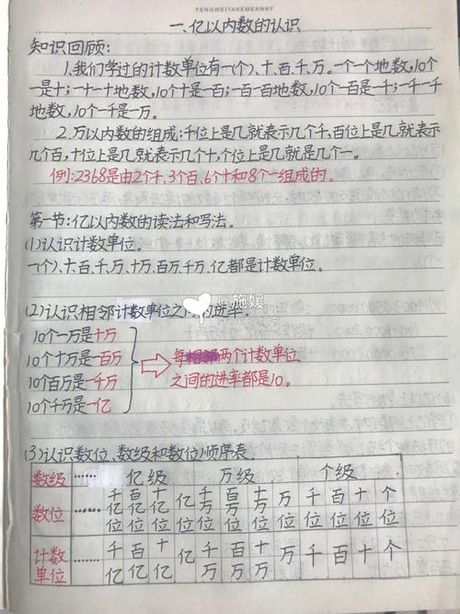 FENGWEITAKEMEAWAY
一.亿以内数的认识
知识回顾:
1.我们学过的计数单位有一(个)、十、百、千、万。一个一个地数,10个
一是十;一十一十地数,10个十是一百;一百一百地数,10个一百是一千;一千一千
地数,10个一千是一万。
2.万以内数的组成:千位上是几就表示几个千,百位上是几就表示
几个百,十位上是几就表示几个十,个位上是几就是几个一。
例:2368是由2个千、3个百、6个十和8个一组成的。
第一节:亿以内数的读法和写法。
(1)认识计数单位。
一(个)、十、百、千、万、十万、百万、千万、亿都是计数单位。
(2)认识相邻计数单位之间的进率.
@施媛
10个一万是十万
10个十万是一百万
10个百万是一千万
10个千万是一亿
每相邻两个计数单位
之间的进率都是10。
(3)认识数位、数级和数位顺序表.
数级 …… 亿级 万级 个级
数位 …… 千亿位 百亿位 十亿位 亿位 千万位 百万位 十万位 万位 千位 百位 十位 个位
计数单位 …… 千亿 百亿 十亿 亿 千万 百万 十万 万 千 百 十 个